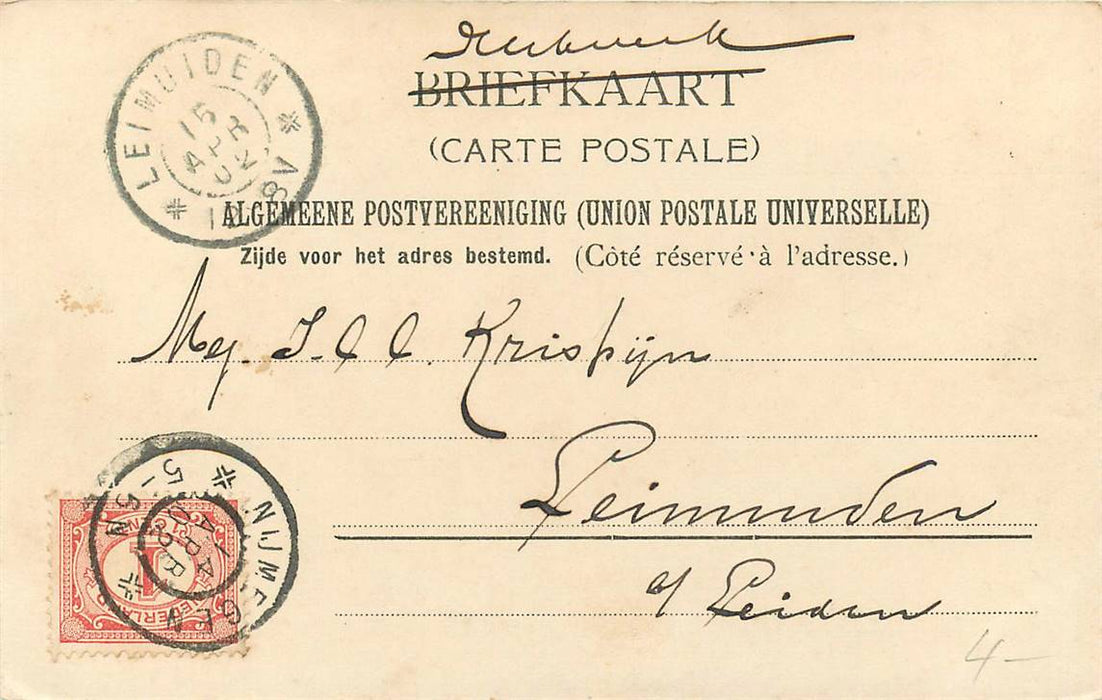 Drukwerk
BRIEFKAART
(CARTE POSTALE)
ALGEMEENE POSTVEREENIGING (UNION POSTALE UNIVERSELLE)
Zijde voor het adres bestemd. (Côté réservé à l'adresse.)
LEIMUIDEN
15
APR
02
8V
Mej. J. C. C. Krispijn
Leimuiden
a/ Leiden
NIJMEGEN
5-6N
APR
1
4-